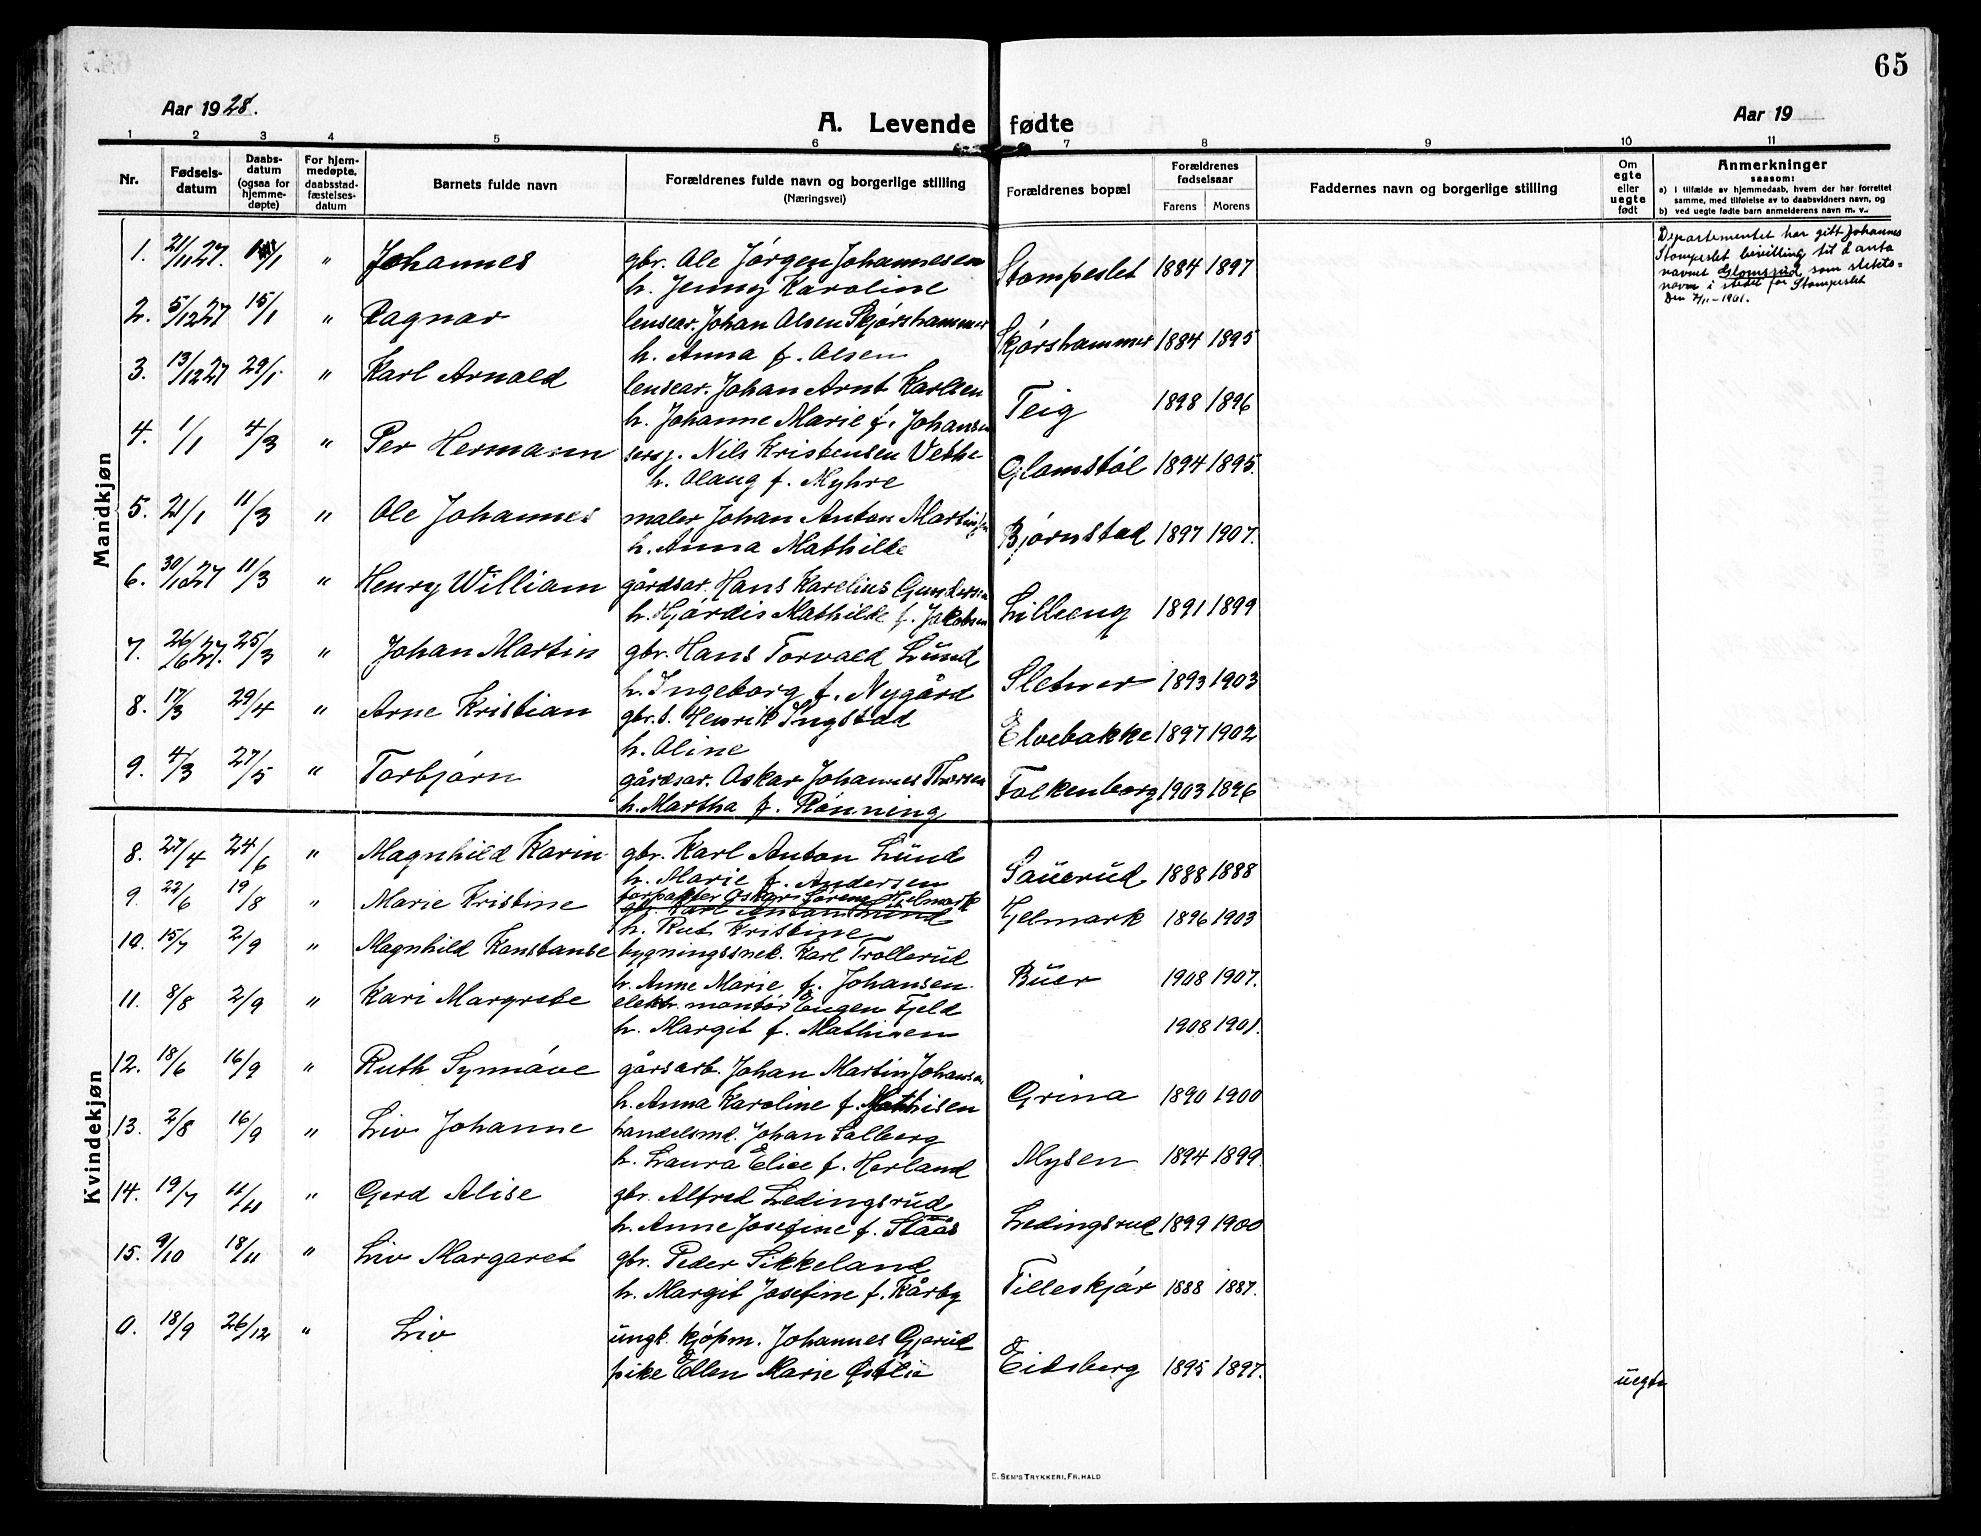 65
Aar 1928.
A. Levende fødte
Aar 19
1 2 3 4 5 6 7 8 9 10 11
Nr.
Fødsels-
datum
Daabs-
datum
(ogsaa for
hjemme-
døpte)
For hjem-
medøpte,
daabsstad-
fæstelses-
datum
Barnets fulde navn
Forældrenes fulde navn og borgerlige stilling
(Næringsvei)
Forældrenes bopæl
Forældrenes
fødselsaar
Farens Morens
Faddernes navn og borgerlige stilling
Om
egte
eller
uegte
født
Anmerkninger
saasom:
a) i tilfælde av hjemmedaab, hvem der har forrettet
samme, med tilføielse av to daabsvidners navn, og
b) ved uegte fødte barn anmelderens navn m. v.
Mandkjøn
1. 21/11 27. /1 " Johannes gbr. Ole Jørgen Johannesen Stompeslet 1884 1897
h. Jenny Karoline
Departementet har gitt Johannes
Stompeslet bevilling til å anta
navnet Glomsrud som slekts-
navn i stedet for Stompeslet
2. 5/12 27 15/1 " Ragnar lensear. Johan Olsen Skjørshammer Skjørshammer 1884 1895
h. Anna f. Olsen
3. 13/12 27 29/1 " Karl Arnold lensear. Johan Arnt Karlsen Teig 1898 1896
h. Johanne Marie f. Johansen
4. 1/1 4/3 " Per Hermann sersj. Nils Kristensen Vethe Glomstøl 1894 1895.
h. Olaug f. Myhre
5. 21/1 11/3 " Ole Johannes maler Johan Anton Martinsen Bjørnstad 1897 1907.
h. Anna Mathilde
6. 30/10 27 11/3 " Henry William gårdsar. Hans Karelius Gundersen Lilleeng 1891 1899
h. Hjørdis Mathilde f. Jakobsen
7. 26/6 27. 25/3 " Johan Martin gbr. Hans Torvald Lund Sletner 1893 1903
h. Ingeborg f. Nygård
8. 17/3 29/4 " Arne Kristian gbr.s. Henrik Ingstad Elvebakke 1897 1902
h. Oline
9. 4/3 27/5 " Torbjørn gårdsar. Oskar Johannes Thorsen Falkenborg 1903 1896
h. Martha f. Rønning
Kvindekjøn
8. 27/4 24/6 " Magnhild Karin gbr. Karl Anton Lund Sauerud 1888 1888
h. Marie f. Andersen
9. 22/6 19/8 " Marie Kristine forpakter Oskar Sørensen Hjelmark Hjelmark 1896 1903
gbr. Karl Anton Lund
h. Rut Kristine
10. 15/7 2/9 " Magnhild Konstanse bygningssnek. Karl Trollerud Buer 1908 1907.
h. Anne Marie f. Johansen.
11. 8/8 2/9 " Kari Margrete elektr. montør Eugen Fjeld 1908 1901.
h. Margit f. Mathisen
12. 18/6 16/9 " Ruth Synnøve gårsarb. Johan Martin Johansen Grina 1890 1900
h. Anna Karoline f. Mathisen
13. 2/8 16/9 " Liv Johanne handelsmd. Johan Solberg Mysen 1894 1899
h. Laura Elise f. Herland
14. 19/7 11/11 " Gerd Alise gbr. Alfred Ledingsrud Ledingsrud 1899 1900
h. Anne Josefine f. Staås
15. 9/10 18/11 " Liv Margaret gbr. Peder Sikkeland Tilleskjør 1888 1887.
h. Margit Josefine f. Kårby
0. 18/9 26/12 " Liv ungk. kjøpm. Johannes Gjerud Eidsberg 1895 1897. uegte
pike Ellen Marie Østlie
E. SEM'S TRYKKERI, FR.HALD